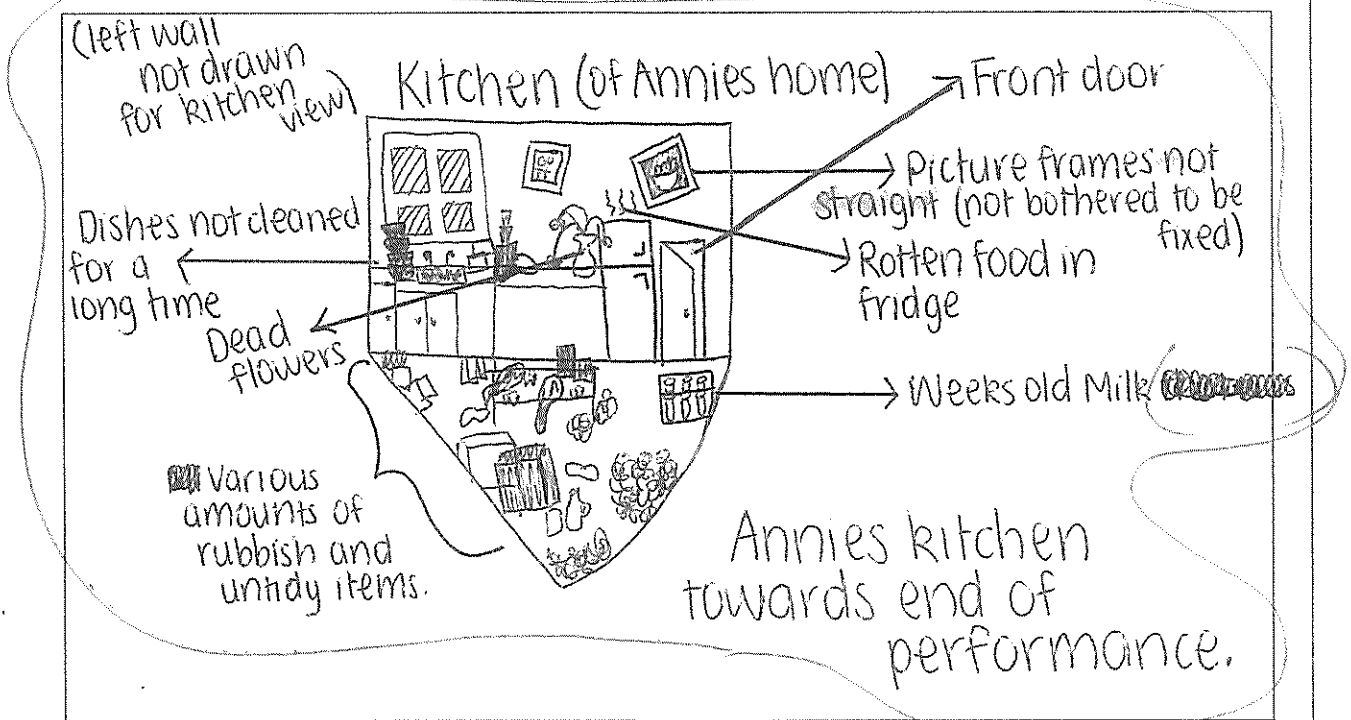 (left wall
not drawn
for kitchen
view)
Kitchen (of Annies home)
Front door
Picture frames not
straight (not bothered to be
fixed)
Dishes not cleaned
for a
long time
Rotten food in
fridge
Dead
flowers
Weeks old Milk
Various
amounts of
rubbish and
untidy items.
Annies kitchen
towards end of
performance.